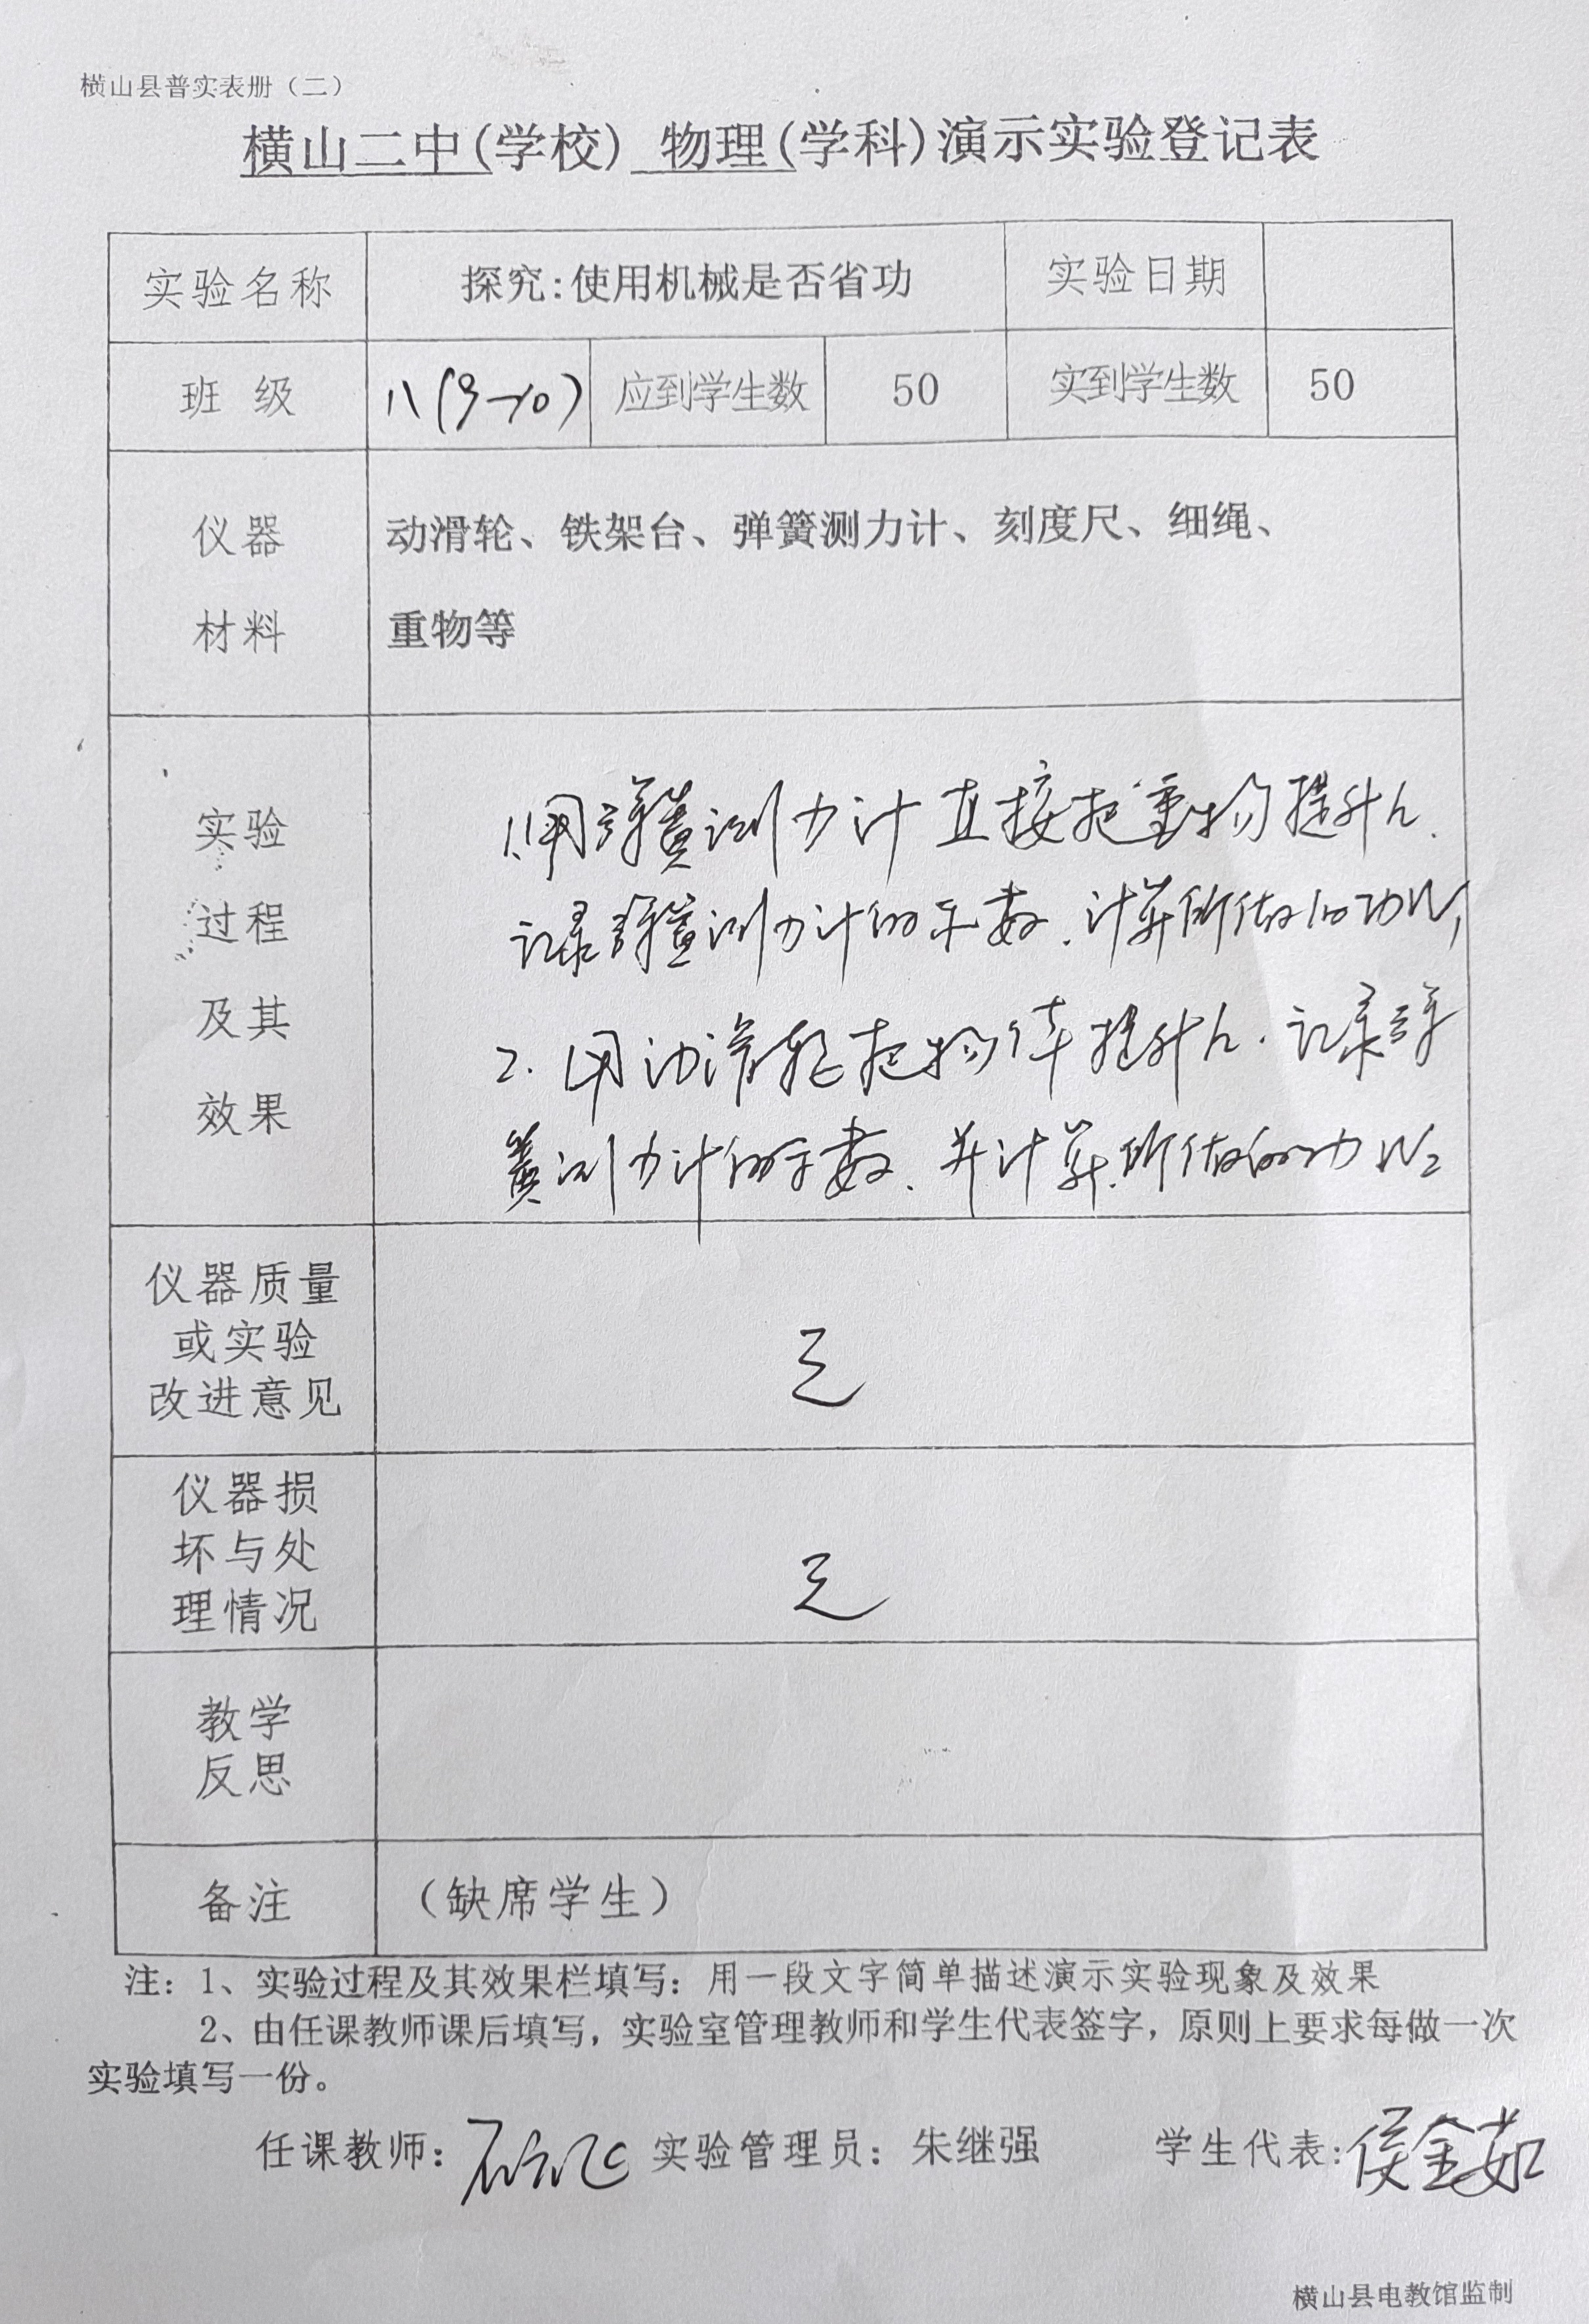 横山县普实表册（二）
横山二中(学校) 物理(学科)演示实验登记表
实验名称 探究:使用机械是否省功 实验日期
班 级 八(9-10) 应到学生数 50 实到学生数 50
仪器 动滑轮、铁架台、弹簧测力计、刻度尺、细绳、
材料 重物等
实验 1.用弹簧测力计直接把重物提升h.
过程 记录弹簧测力计的示数.计算所做的功W1
及其 2.用动滑轮把物体提升h.记录弹
效果 簧测力计的示数.并计算所做的功W2
仪器质量
或实验 无
改进意见
仪器损
坏与处 无
理情况
教学
反思
备注 （缺席学生）
注：1、实验过程及其效果栏填写：用一段文字简单描述演示实验现象及效果
2、由任课教师课后填写，实验室管理教师和学生代表签字，原则上要求每做一次
实验填写一份。
任课教师: 实验管理员：朱继强 学生代表:侯金茹
横山县电教馆监制